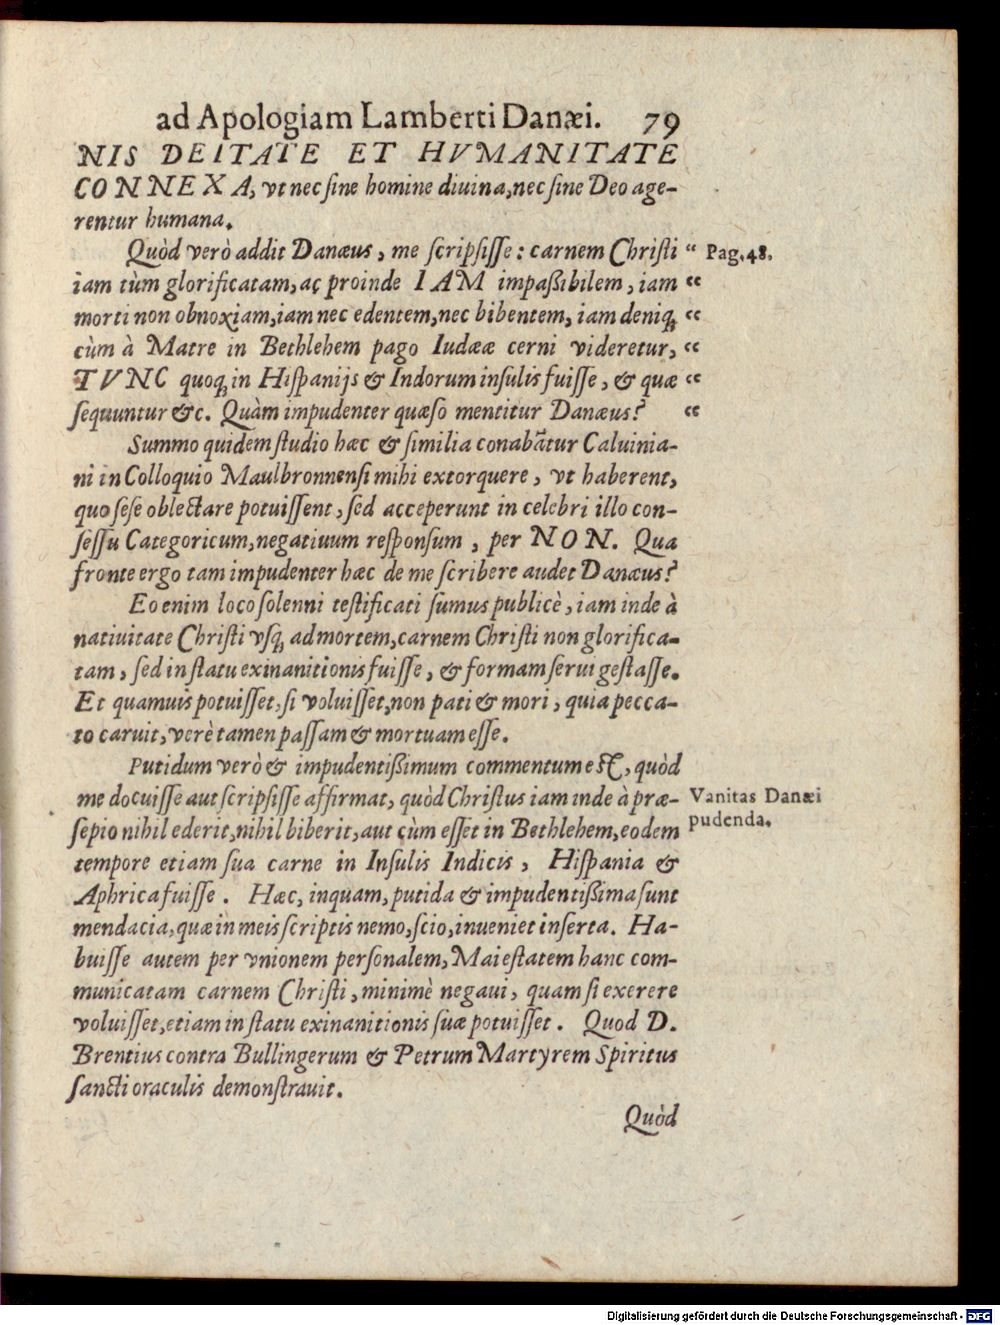 ad Apologiam Lamberti Danæi. 79
NIS DEITATE ET HVMANITATE
CONNEXA, vt nec ſine homine diuina, nec ſine Deo age-
rentur humana.
Quòd verò addit Danæus, me ſcripſiſſe: carnem Chriſti “ Pag. 48.
iam tùm glorificatam, ac proinde IAM impaßibilem, iam “
morti non obnoxiam, iam nec edentem, nec bibentem, iam deniq; “
cùm à Matre in Bethlehem pago Iudææ cerni videretur, “
TVNC quoq; in Hiſpanijs & Indorum inſulis fuiſſe, & quæ “
ſequuntur &c. Quàm impudenter quæſo mentitur Danæus? “
Summo quidem ſtudio hæc & ſimilia conabātur Caluinia-
ni in Colloquio Maulbronnenſi mihi extorquere, vt haberent,
quo ſeſe oblectare potuiſſent, ſed acceperunt in celebri illo con-
ſeſſu Categoricum, negatiuum reſponſum, per NON. Qua
fronte ergo tam impudenter hæc de me ſcribere audet Danæus?
Eo enim loco ſolenni teſtificati ſumus publicè, iam inde à
natiuitate Chriſti vſq; ad mortem, carnem Chriſti non glorifica-
tam, ſed in ſtatu exinanitionis fuiſſe, & formam ſerui geſtaſſe.
Et quamuis potuiſſet, ſi voluiſſet, non pati & mori, quia pecca-
to caruit, verè tamen paſſam & mortuam eſſe.
Putidum verò & impudentißimum commentum eſt, quòd
me docuiſſe aut ſcripſiſſe affirmat, quòd Chriſtus iam inde à præ-
ſepio nihil ederit, nihil biberit, aut cùm eſſet in Bethlehem, eodem
tempore etiam ſua carne in Inſulis Indicis, Hiſpania &
Aphrica fuiſſe. Hæc, inquam, putida & impudentißima ſunt
mendacia, quæ in meis ſcriptis nemo, ſcio, inueniet inſerta. Ha-
buiſſe autem per vnionem perſonalem, Maieſtatem hanc com-
municatam carnem Chriſti, minimè negaui, quam ſi exerere
voluiſſet, etiam in ſtatu exinanitionis ſuæ potuiſſet. Quod D.
Brentius contra Bullingerum & Petrum Martyrem Spiritus
ſancti oraculis demonſtrauit.
Quòd
Vanitas Danæi
pudenda.
Digitalisierung gefördert durch die Deutsche Forschungsgemeinschaft - DFG